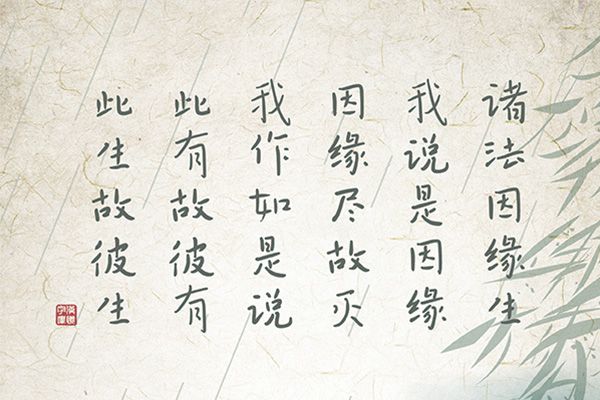 诸法因缘生
我说是因缘
因缘尽故灭
我作如是说
此有故彼有
此生故彼生